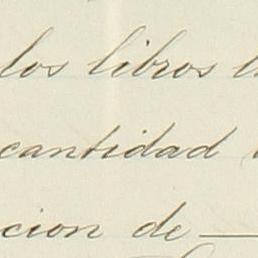 los libros
cantidad
cion de